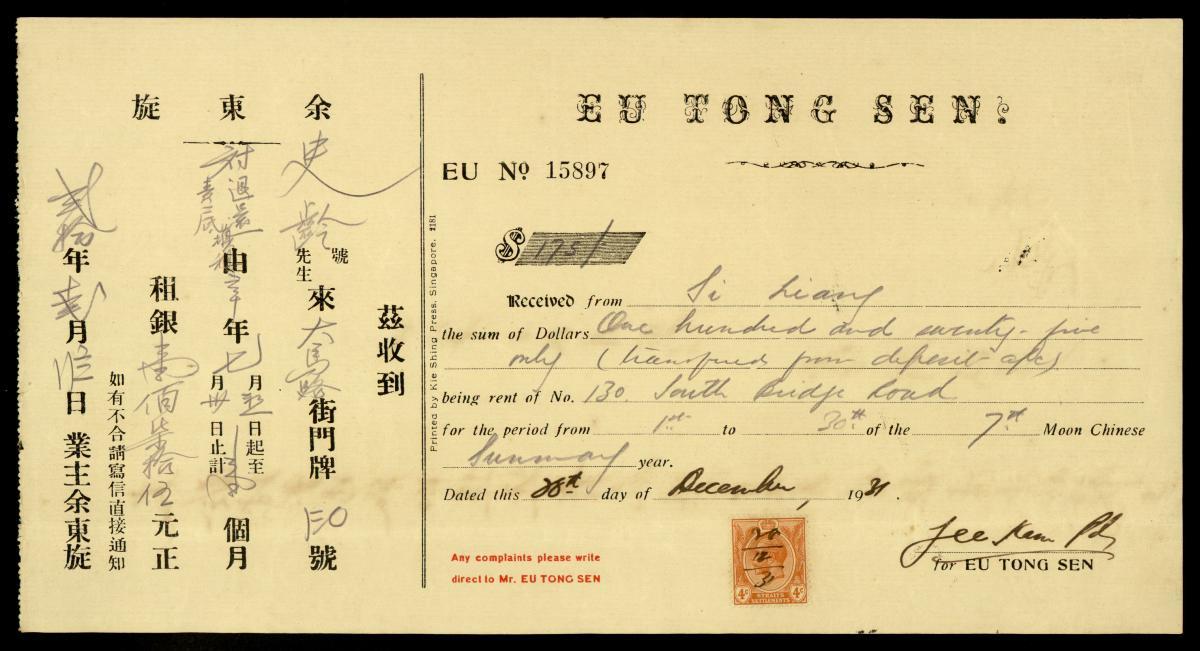 EU TONG SEN.
EU No 15897
$ 175/
Received from Si Liang
the sum of Dollars One hundred and seventy-five
only (transferred from deposit a/c)
being rent of No. 130 South Bridge Road
for the period from 1st to 30th of the 7th Moon Chinese
year.
Dated this day of December, 1931.
for EU TONG SEN
Any complaints please write
direct to Mr. EU TONG SEN
20
12
31
4c 4c
STRAITS
SETTLEMENTS
Printed by Kie Shing Press, Singapore. 1181
余東旋
茲收到
史齡 號先生來大馬路街門牌130號
由辛年七月初一日起至
月卅日止計壹個月
租銀壹佰柒拾伍元正
如有不合請寫信直接通知
年月日業主余東旋